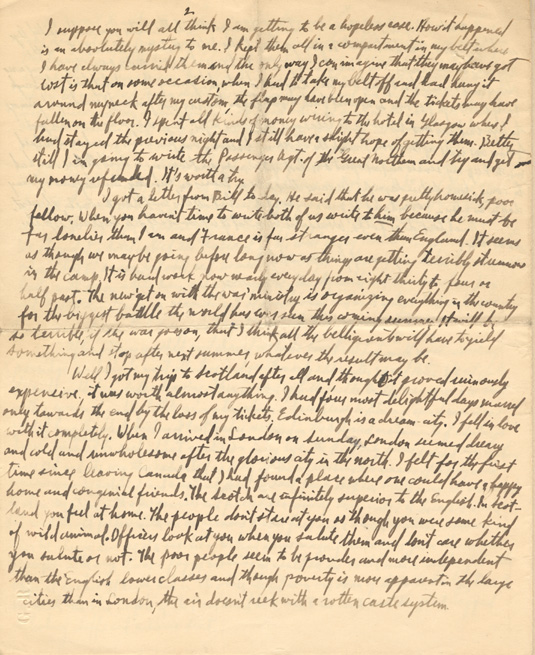 2
I suppose you will all think I am getting to be a hopeless case. How it happened
is an absolutely mystery to me. I kept them all in a compartment in my belt where
I have always carried them and the only way I can imagine that they may have got
lost is that on some occasion when I had to take my belt off and had hung it
around my neck after my custom the flap may have been open and the tickets may have
fallen on the floor. I spent all kinds of money wiring to the hotel in Glasgow where I
had stayed the previous night and I still have a slight hope of getting them. Better
still I am going to write the Passenger Agt. of the Great Northern and try and get
my money refunded. It's worth a try.
I got a letter from Bill to-day. He said that he was pretty homesick, poor
fellow. When you haven't time to write both of us write to him because he must be
far lonelier than I am and France is far stranger even than England. It seems
as though we may be going before long now as things are getting terribly strenuous
in the camp. It is hard work now many every day from eight thirty to four or
half past. The new get on with the war ministry is organizing everything in the country
for the biggest battle the world has ever seen this coming summer. It will be
so terrible, if the war goes on, that I think all the belligerents will have to yield
something and stop after next summer, whatever the result may be.
Well I got my trip to Scotland after all and though it proved ruinously
expensive, it was worth almost anything. I had four most delightful days marred
only towards the end by the loss of my tickets. Edinburgh is a dream city. I fell in love
with it completely. When I arrived in London on Sunday, London seemed dreary
and cold and unwholesome after the glorious city in the north. I felt for the first
time since leaving Canada that I had found a place where one could have a happy
home and congenial friends. The Scotch are infinitely superior to the English. In Scot-
land you feel at home. The people don't stare at you as though you were some kind
of wild animal. Officers look at you when you salute them and don't care whether
you salute or not. The poor people seem to be prouder and more independent
than the English lower classes and though poverty is more apparent in the large
cities than in London, the air doesn't reek with a rotten caste system